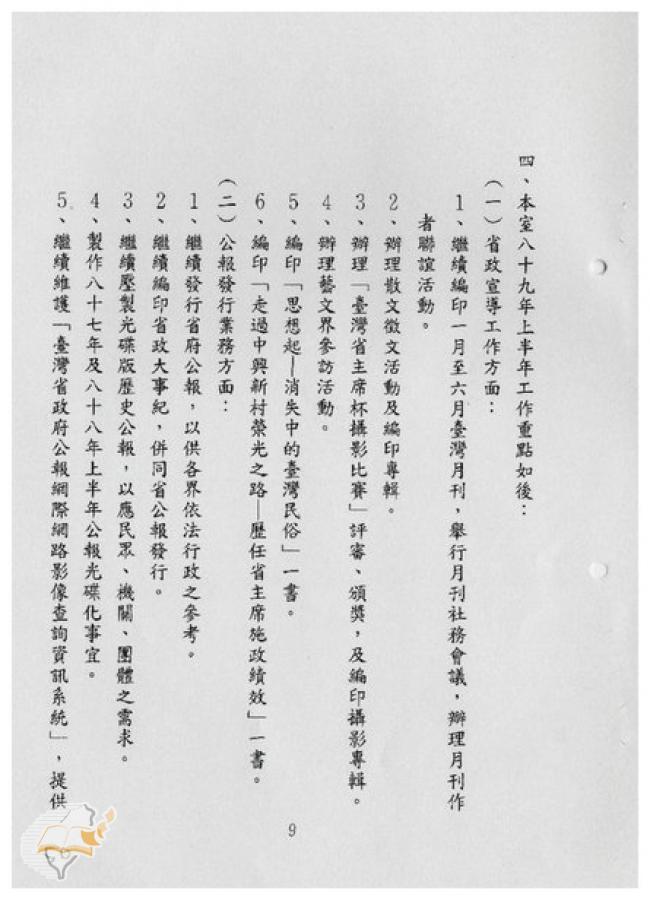 四、本室八十九年上半年工作重點如後：
（一）省政宣導工作方面：
1、繼續編印一月至六月臺灣月刊，舉行月刊社務會議，辦理月刊作
者聯誼活動。
2、辦理散文徵文活動及編印專輯。
3、辦理「臺灣省主席杯攝影比賽」評審、頒獎，及編印攝影專輯。
4、辦理藝文界參訪活動。
5、編印「思想起—消失中的臺灣民俗」一書。
6、編印「走過中興新村榮光之路—歷任省主席施政績效」一書。
（二）公報發行業務方面：
1、繼續發行省府公報，以供各界依法行政之參考。
2、繼續編印省政大事紀，併同省公報發行。
3、繼續壓製光碟版歷史公報，以應民眾、機關、團體之需求。
4、製作八十七年及八十八年上半年公報光碟化事宜。
5、繼續維護「臺灣省政府公報網際網路影像查詢資訊系統」，提供
9